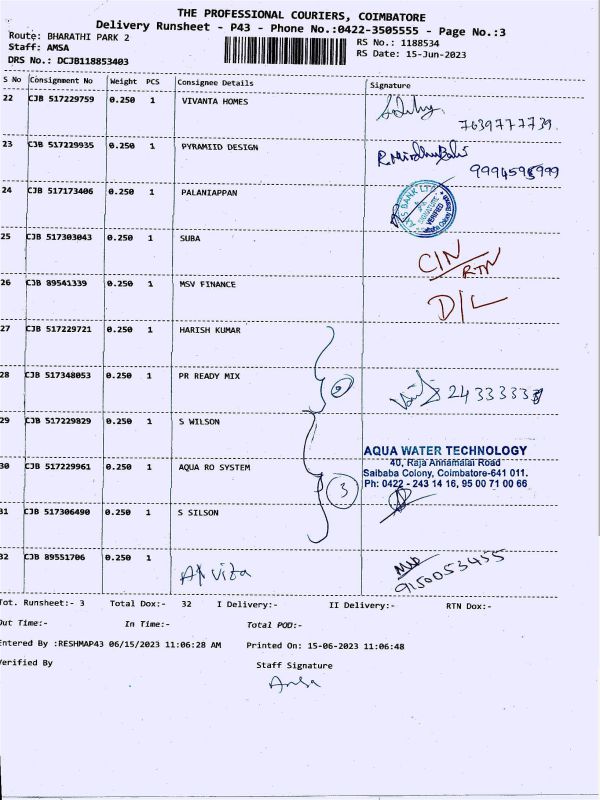 THE PROFESSIONAL COURIERS, COIMBATORE
Delivery Runsheet - P43 - Phone No.:0422-3505555 - Page No.:3
Route: BHARATHI PARK 2
RS No.: 1188534
Staff: AMSA
RS Date: 15-Jun-2023
DRS No.: DCJB118853403
S No Consignment No Weight PCS Consignee Details Signature
22 CJB 517229759 0.250 1 VIVANTA HOMES
7639777739.
23 CJB 517229935 0.250 1 PYRAMIID DESIGN
9994598999
24 CJB 517173406 0.250 1 PALANIAPPAN
AXIS BANK LTD
SIGNATURE
VERIFIED
25 CJB 517303043 0.250 1 SUBA
C/N
RTN
26 CJB 89541339 0.250 1 MSV FINANCE
D/L
27 CJB 517229721 0.250 1 HARISH KUMAR
28 CJB 517348053 0.250 1 PR READY MIX
29 CJB 517229829 0.250 1 S WILSON
AQUA WATER TECHNOLOGY
40, Raja Annamalai Road
30 CJB 517229961 0.250 1 AQUA RO SYSTEM
Saibaba Colony, Coimbatore-641 011.
Ph: 0422 - 243 14 16, 95 00 71 00 66
3
31 CJB 517306490 0.250 1 S SILSON
32 CJB 89551706 0.250 1
9150053455
Tot. Runsheet:- 3 Total Dox:- 32 I Delivery:- II Delivery:- RTN Dox:-
Out Time:- In Time:- Total POD:-
Entered By :RESHMAP43 06/15/2023 11:06:28 AM Printed On: 15-06-2023 11:06:48
Verified By Staff Signature
Amsa